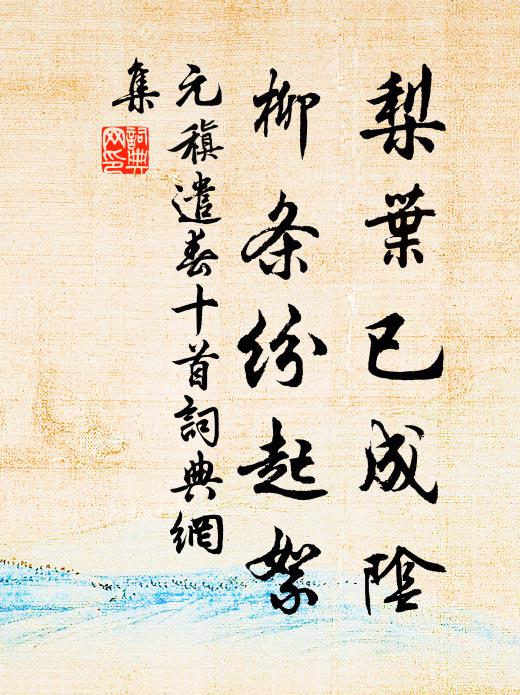 梨葉已成陰
柳条紛起絮
元稹遣春十首詞典網
集
詞典
网印